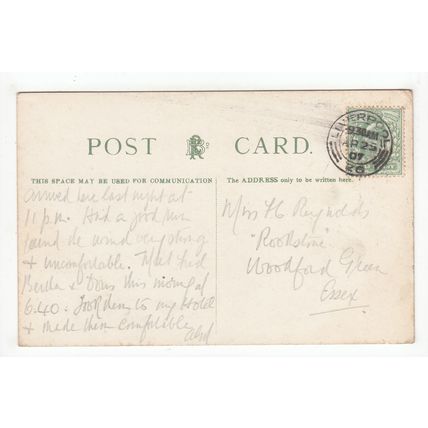 POST CARD.
THIS SPACE MAY BE USED FOR COMMUNICATION
The ADDRESS only to be written here.
LIVERPOOL
AP 23
07
Arrived here last night at
11 pm. Had a good run
found the wind very strong
& uncomfortable. Met
& Doris this morning at
6.40. Took them to my Hotel
& made them comfortable
Miss H Reynolds
Woodford Green
Essex